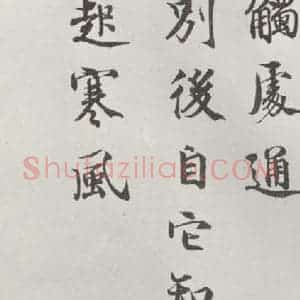 觸處通
別後自它知
趣寒風
Shufaziliao.COM